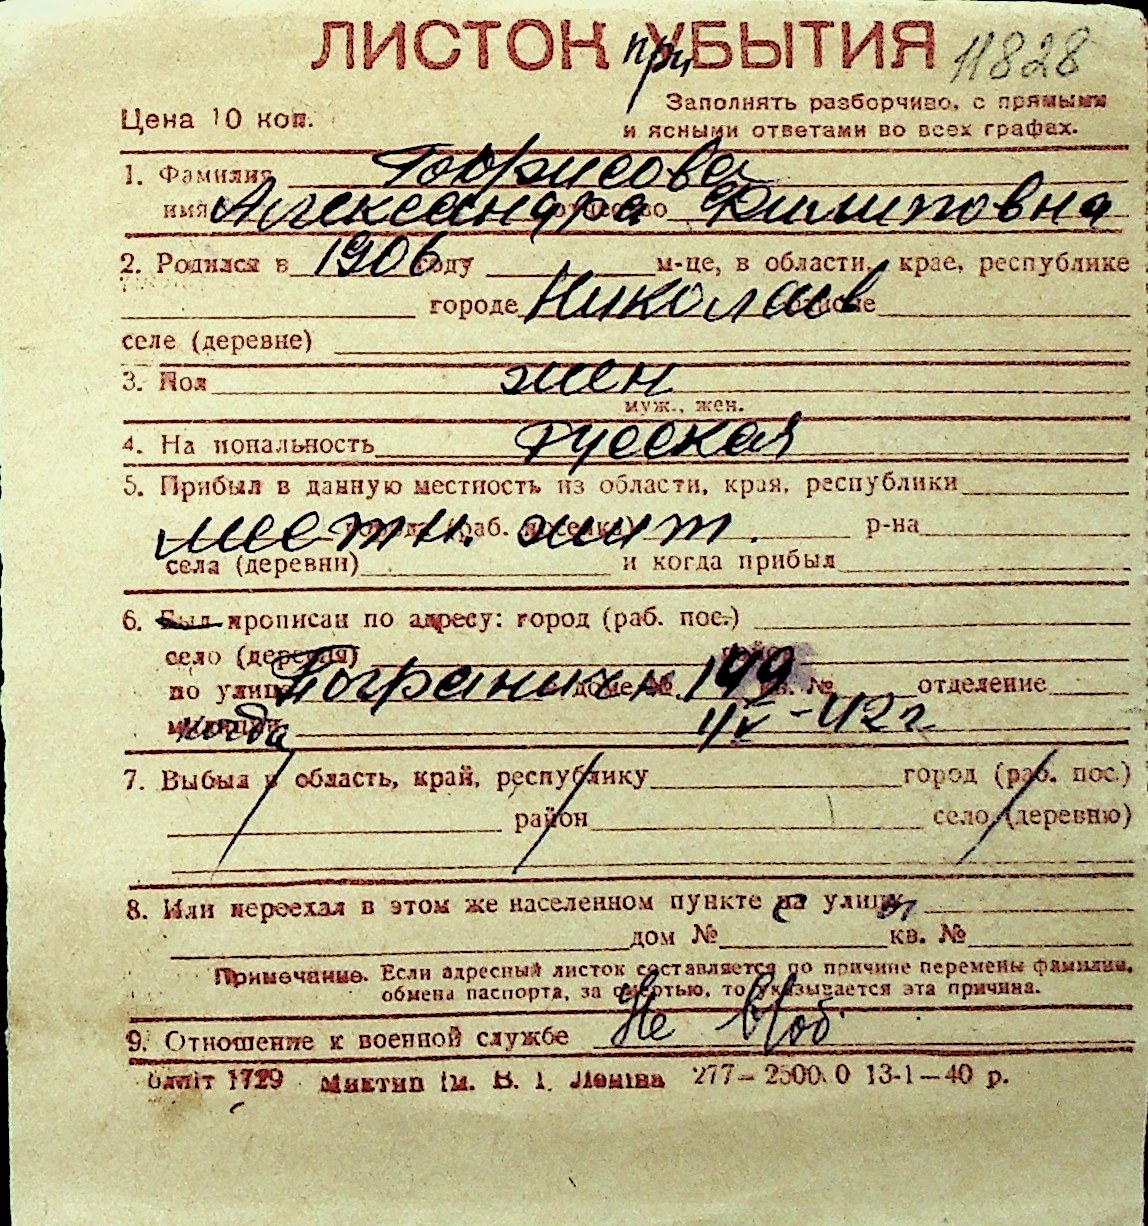 ЛИСТОК при УБЫТИЯ 11828
Цена 10 коп.
Заполнять разборчиво, с прямыми
и ясными ответами во всех графах.
1. Фамилия Борисова
имя Александра отчество Филиповна
2. Родился в 1906 году м-це, в области, крае, республике
городе Николаев районе
селе (деревне)
3. Пол жен
муж., жен.
4. На иональность русская
5. Прибыл в данную местность из области, края, республики
местн. жит. города (раб. поселка) р-на
села (деревни) и когда прибыл
6. Был прописан по адресу: город (раб. пос.)
село (деревня) район
по улице Погранич. дом № 149 кв. № отделение
милиции когда 4/V-42 г.
7. Выбыл в область, край, республику город (раб. пос.)
район село (деревню)
8. Или переехал в этом же населенном пункте на улицу
дом № кв. №
Примечание. Если адресный листок составляется по причине перемены фамилии,
обмена паспорта, за смертью, то указывается эта причина.
9. Отношение к военной службе Не в/об
блліт 1729 Миктип ім. В. І. Леніна 277—25000 13-1—40 р.